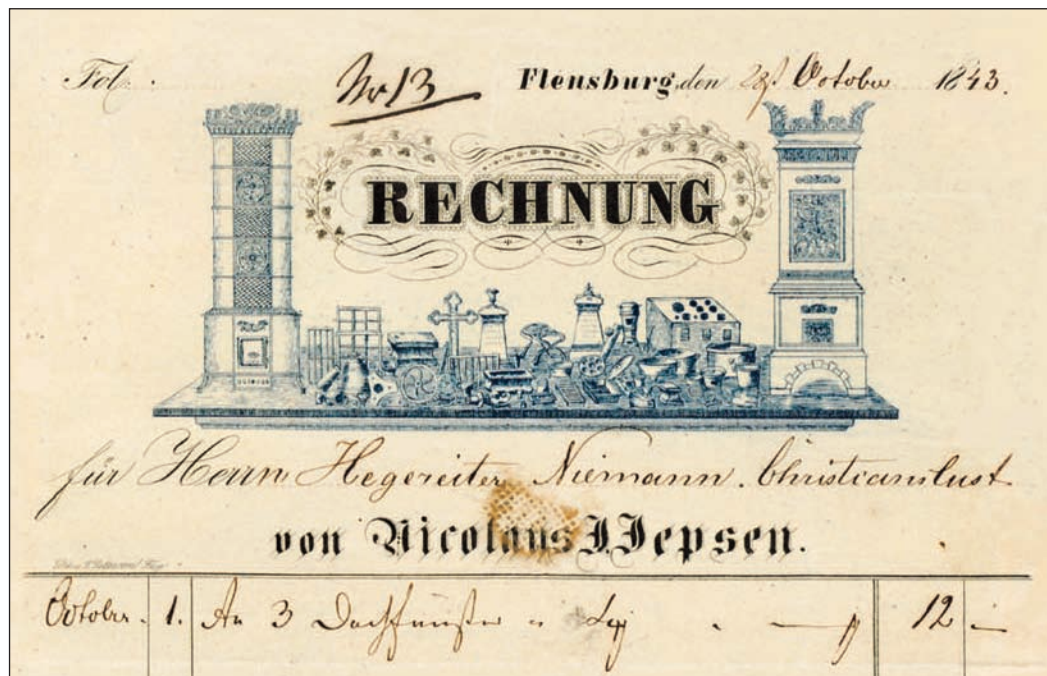 Fol. No 13 Flensburg, den October 1843.
RECHNUNG
für Herrn Hegereiter Niemann. Christianslust
von Nicolaus J. Jepsen.
October. 1. An 3 Dachfenster 12 —